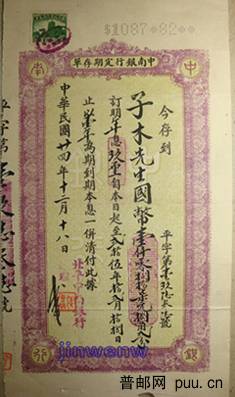 $1087.82
中南銀行定期存單
中
南
今存到
子木先生國幣壹仟零捌拾柒元捌角弍分
訂期年息玖厘自本日起至弍拾伍年拾弍月拾捌日
止壹年為期到期本息一併清付此據
中華民國廿四年十二月十八日
平字第
號
銀
行
jinwenw
普邮网 puu.cn